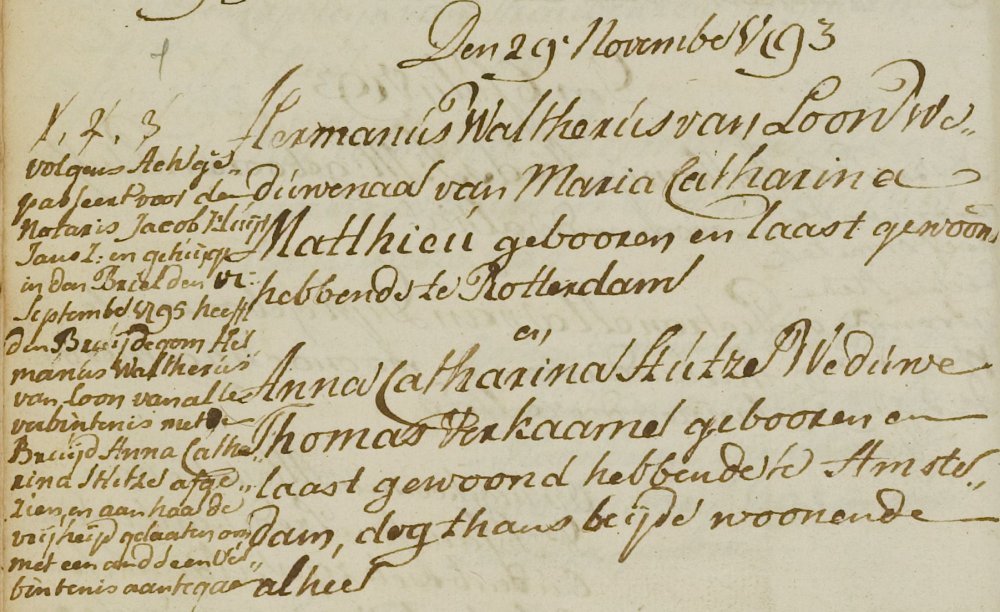 Den 29 November 1793
1. 2. 3
volgens Acte ge„
passeert voor de
Notaris Jacob
Jansz: en getuijge
in den Briel den
September 1795 heeft
den Bruijdegom Her
manus Waltherus
van Loon van alle
verbintenis met de
Bruijd Anna Catha
rina Stutze afge„
zien, en aan haar de
vrijheijd gelaaten om
met een ander een ver
bintenis aan te gaan
Hermanus Waltherus van Loon We„
duwenaar van Maria Catharina
Matthieu gebooren en laast gewoond
hebbende te Rotterdam
en
Anna Catharina Stutze Weduwe
Thomas Verkaamer gebooren en
laast gewoond hebbende te Amster„
dam, dog thans beijde woonende
alhier